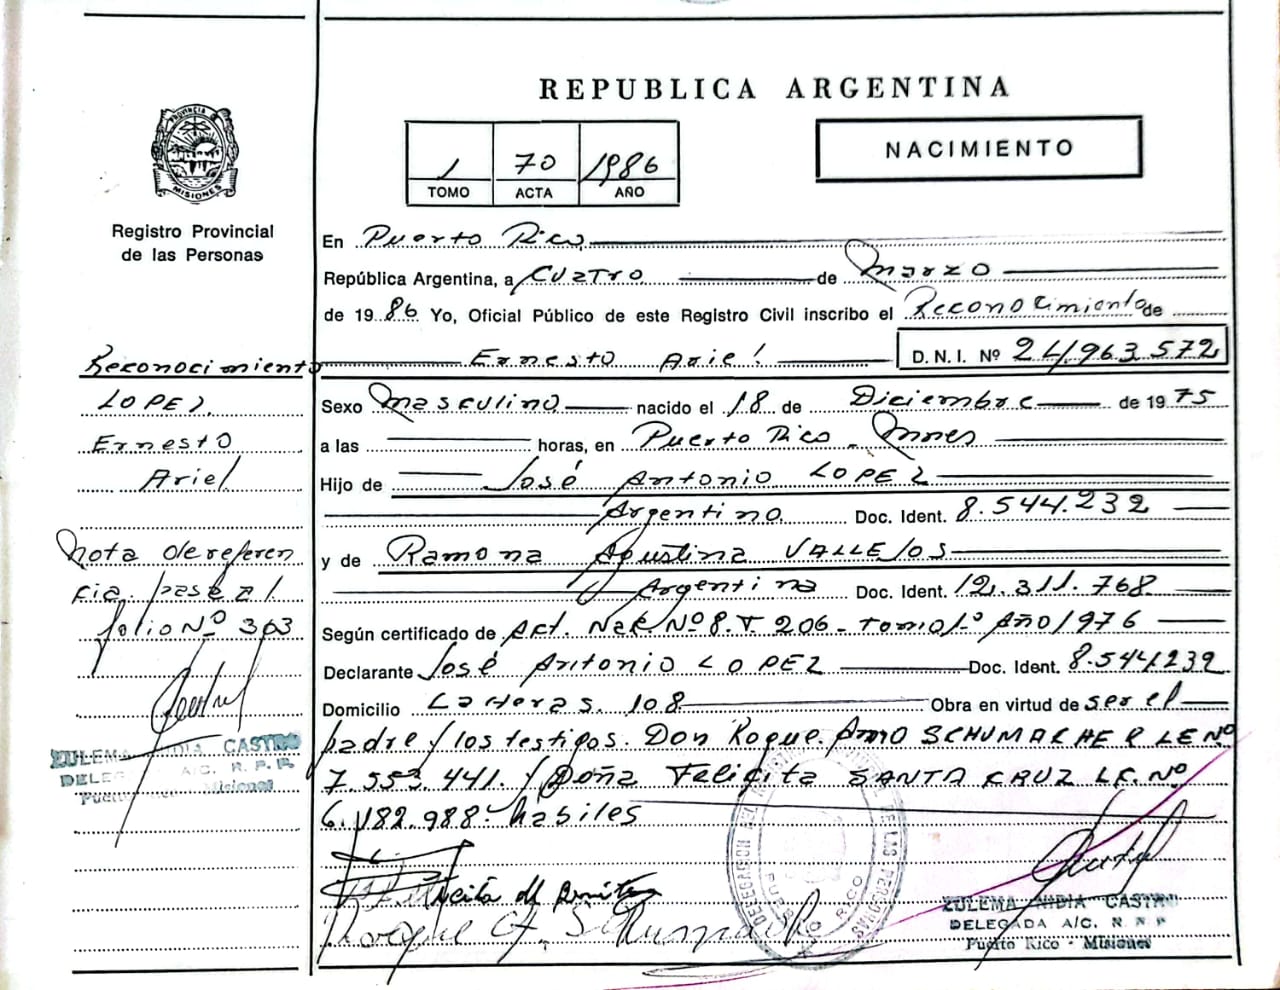 REPUBLICA ARGENTINA
1 70 1986
TOMO ACTA AÑO
NACIMIENTO
PROVINCIA
MISIONES
Registro Provincial
de las Personas
En Puerto Rico
República Argentina, a Cuatro de Marzo
de 1986 Yo, Oficial Público de este Registro Civil inscribo el Reconocimiento de
Ernesto Ariel D.N.I. Nº 24.963.572
Sexo Masculino nacido el 18 de Diciembre de 1975
a las horas, en Puerto Rico - Mnes
Hijo de José Antonio LOPEZ
Argentino Doc. Ident. 8.544.232
y de Ramona Agustina VALLEJOS
Argentina Doc. Ident. 12.311.768
Según certificado de Act. Nac. Nº 8. T. 206 - Tomo 1º Año 1976
Declarante José Antonio LOPEZ Doc. Ident. 8.544.232
Domicilio Las Heras. 108 Obra en virtud de ser el
padre y los testigos. Don Roque SCHUMACHER LE Nº
7.553.441. y Doña Felicita SANTA CRUZ LC. Nº
6.182.988 - hábiles
Reconocimiento
LOPEZ
Ernesto
Ariel
Nota de referen
cia. pase al
folio Nº 363
ZULEMA NIDIA CASTRO
DELEGADA A/C. R. P. P.
Puerto Rico - Misiones
DELEGACION DEL REGISTRO PROVINCIAL DE LAS PERSONAS
PUERTO RICO
ZULEMA NIDIA CASTRO
DELEGADA A/C. R. P. P.
Puerto Rico - Misiones